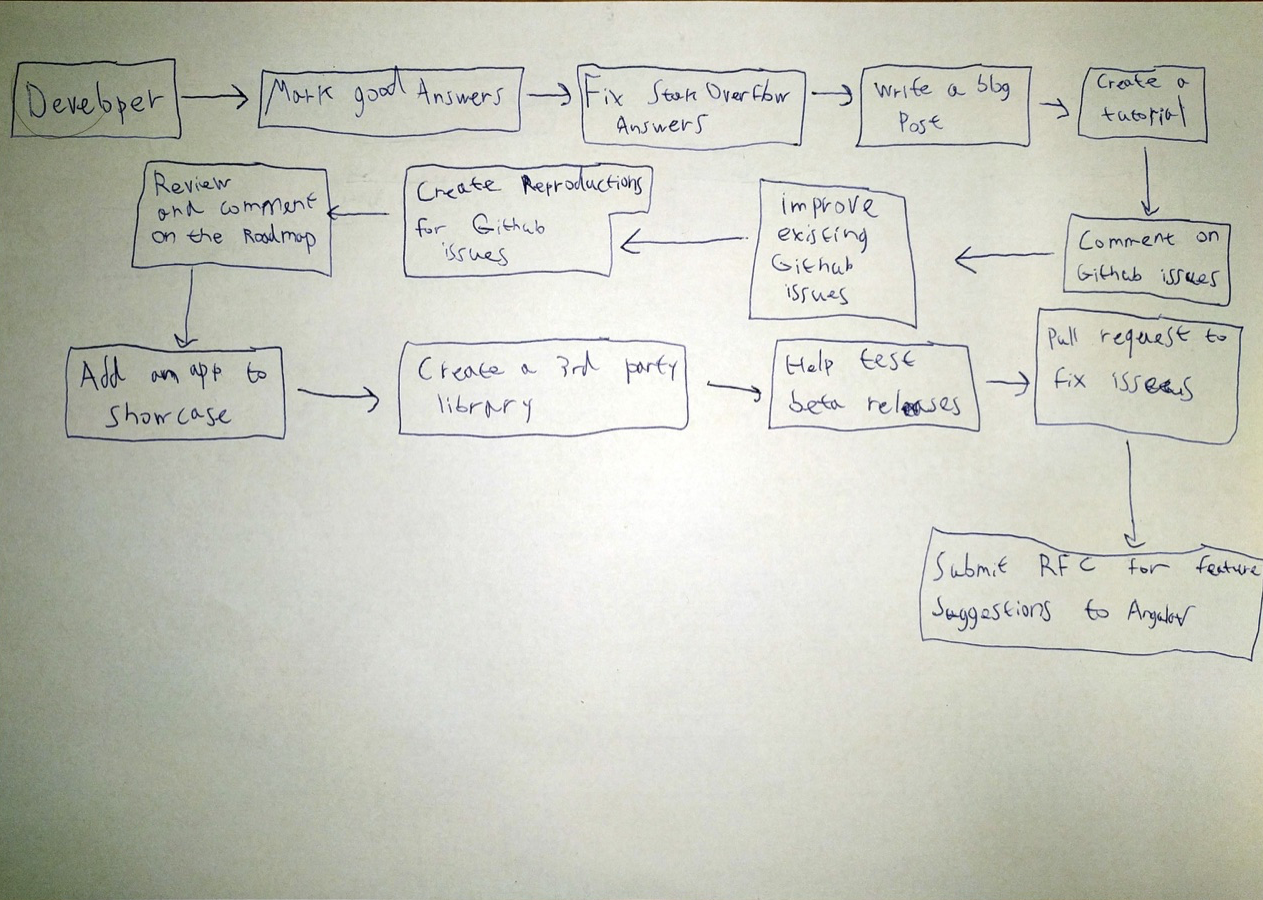 Developer
Mark good Answers
Fix Stack Overflow
Answers
Write a blog
Post
Create a
tutorial
Comment on
Github issues
improve
existing
Github
issues
Create Reproductions
for Github
issues
Review
and comment
on the Roadmap
Add an app to
showcase
Create a 3rd party
library
Help test
beta releases
Pull request to
fix issues
Submit RFC for feature
Suggestions to Angular